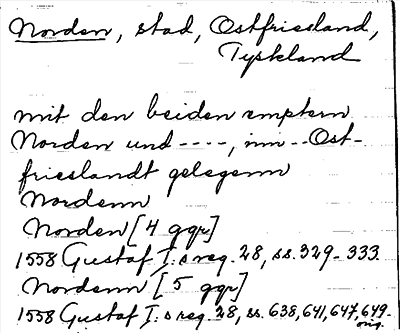 Norden, stad, Ostfriesland,
Tyskland
mit den beiden emptern
Norden und ----, inn -- Ost-
frieslandt gelegenn
Nordenn
Norden [4 ggr]
1558 Gustaf I:s reg. 28, ss. 329-333
Nordenn [5 ggr]
1558 Gustaf I:s reg. 28, ss. 638, 641, 647, 649.
orig.